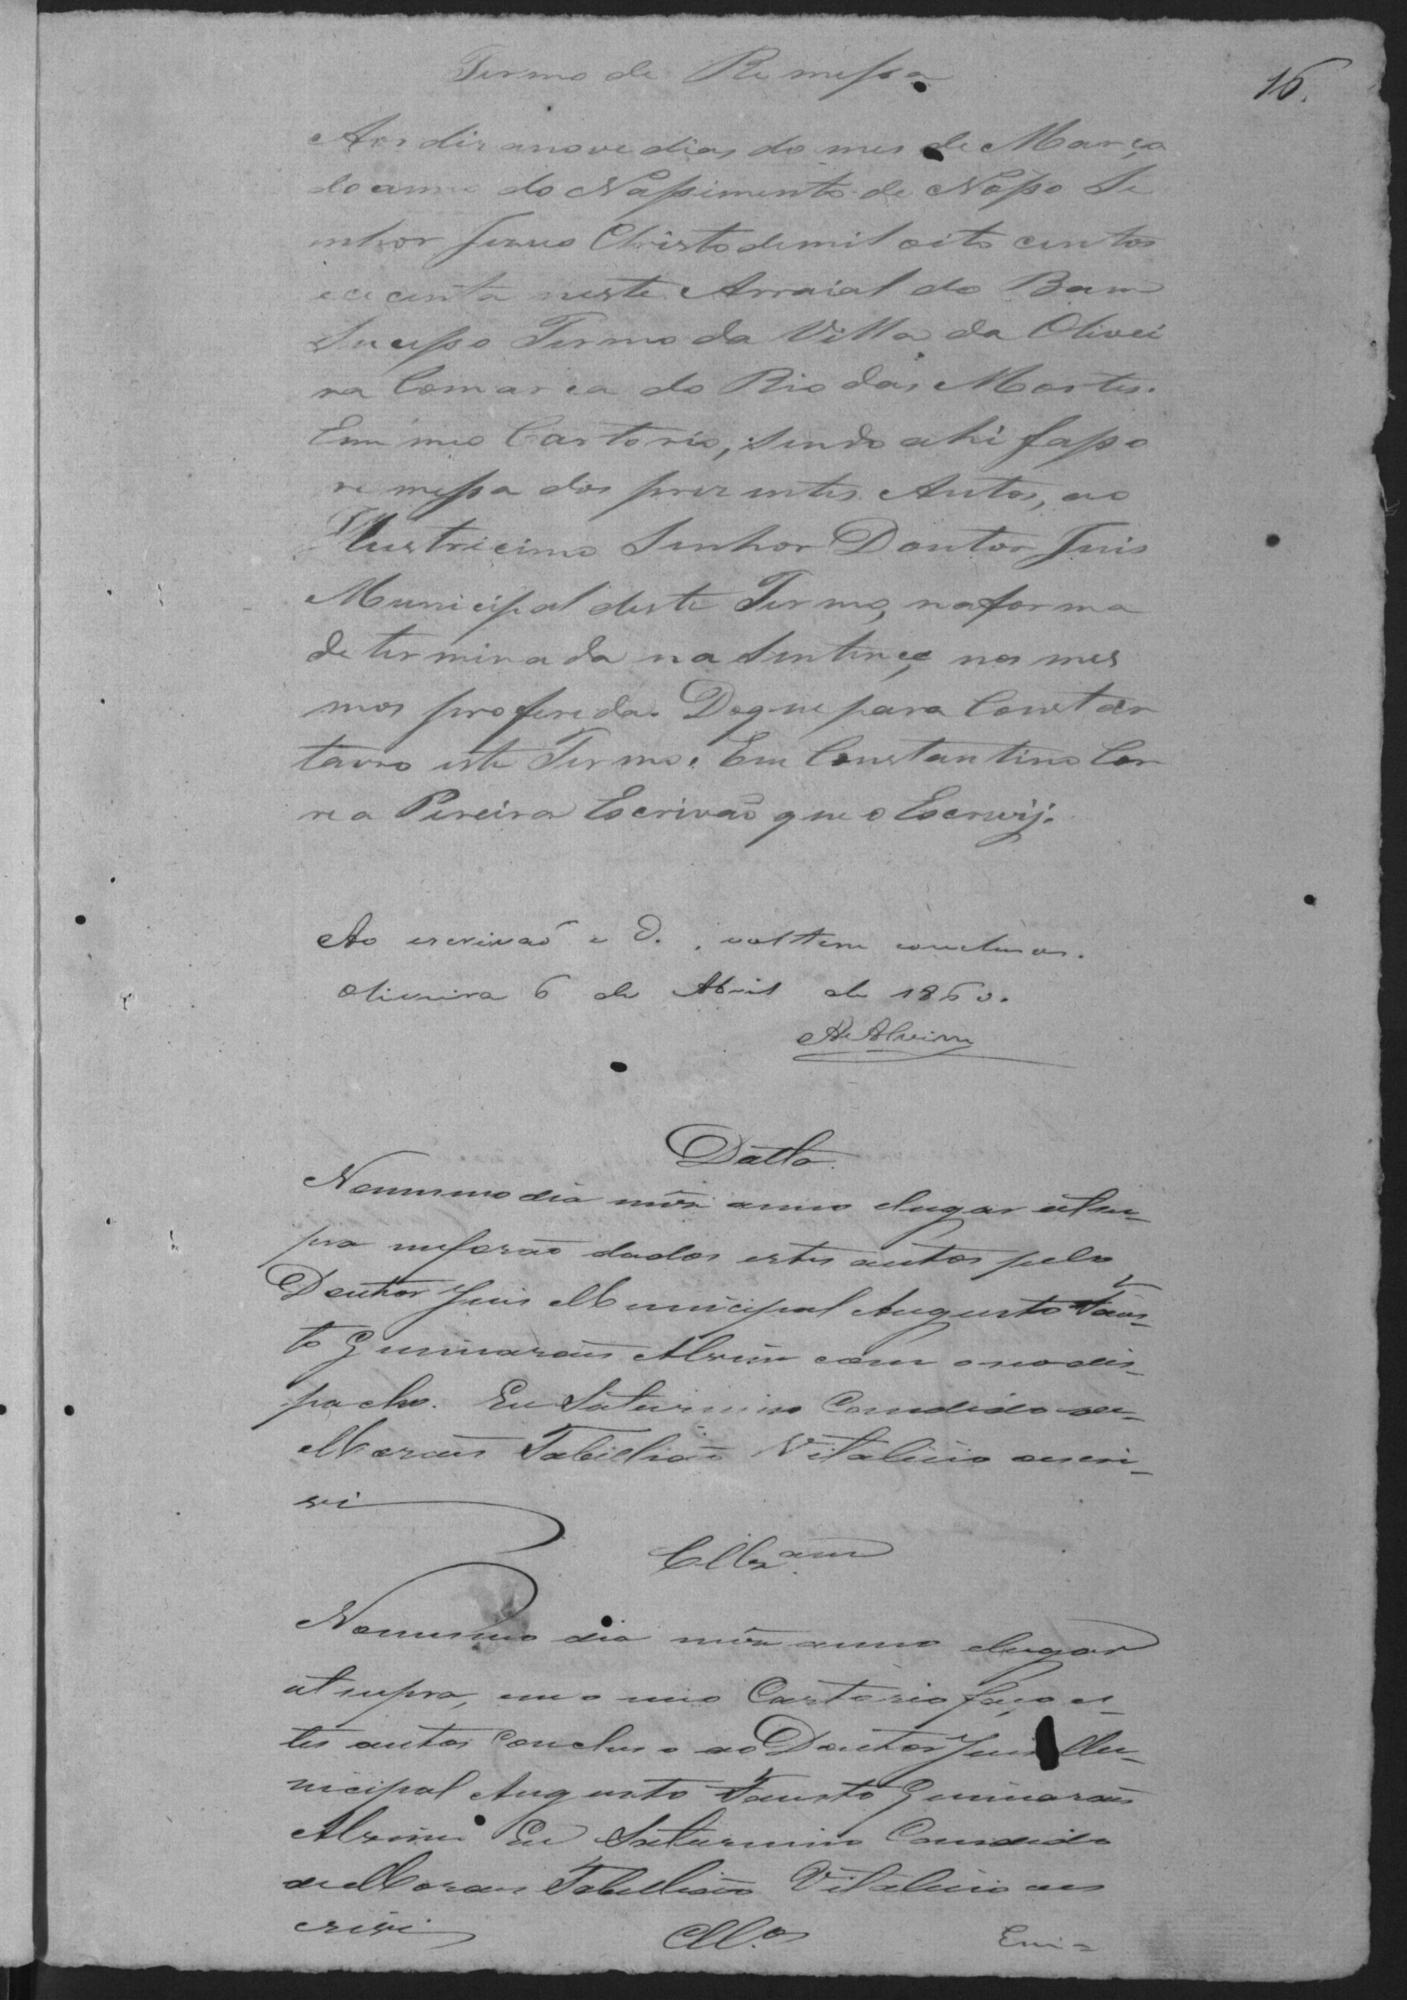 16.
Termo de Remessa
Aos dizanove dias do mes de Março
do anno do Nassimento de Nosso Se
nhor Jezus Christo de mil oito centos
e cecenta neste Arraial do Bom
Sucesso Termo da Villa da Olivei
ra Comarca do Rio das Mortes.
Em meo Cartorio, sendo ahi fasso
remessa dos prezentes Autos, ao
Illustricimo Senhor Doutor Juis
Municipal deste Termo, na forma
determinada na Sentença nos mes
mos proferida. Do que para Constar
lavro este Termo. Eu Constantino Cor
rea Pereira Escrivão que o Escrevij.
Ao escrivaõ e D. , voltem conclusos.
Oliveira 6 de Abril de 1860.
Alvim
Datta
No mesmo dia mês anno elugar utsu-
pra me foraõ dados estes autos pelo
Doutor Juis Municipal Augusto Faus-
to Guimarães Alvim com o seo des-
pacho. Eu Saturnino Candido de
Moraes Tabelliaõ Vitalicio o escre-
vi
Cllzam
No mesmo dia mês anno elugar
utsupra, em o meo Cartorio faço es-
tes autos concluso ao Doutor Juis Mu-
nicipal Augusto Fausto Guimarães
Alvim Eu Saturnino Candido
de Moraes Tabelliaõ Vitalicio o es
crevi
Cll.os